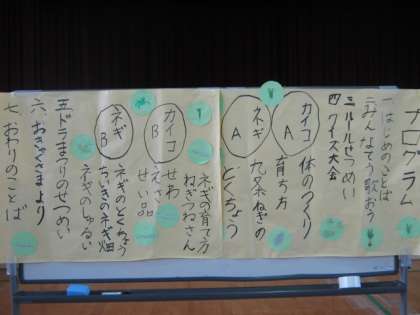 プログラム
一 はじめのことば
二 みんなで歌おう!
三 ルールせつめい
四 クイズ大会
カイコ A
体のつくり
育ち方
ネギ A
九条ねぎの
とくちょう
ネギの育て方
ねぎつねさん
カイコ B
せわ
えさ
せい品
ネギ B
ネギのとくちょう
ちいきのネギ畑
ネギのしゅるい
五 ドラまつりのせつめい
六 おきゃくさまより
七 おわりのことば